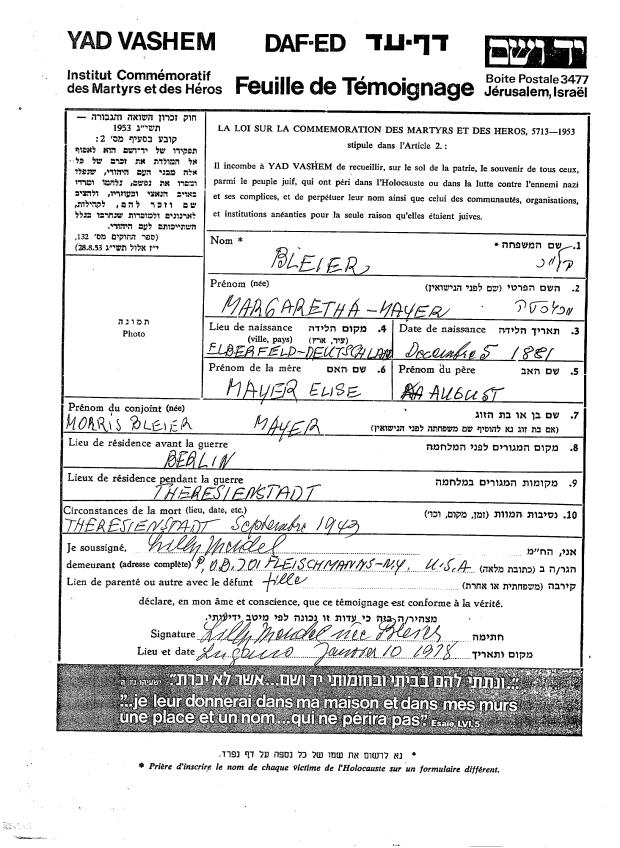 YAD VASHEM DAF-ED דף-עד יד ושם
Institut Commémoratif
des Martyrs et des Héros
Feuille de Témoignage
Boite Postale 3477
Jérusalem, Israël
חוק זכרון השואה והגבורה —
תשי״ג 1953
קובע בסעיף מס׳ 2:
תפקידו של יד-ושם הוא לאסוף
אל המולדת את זכרם של כל
אלה מבני העם היהודי, שנפלו
ומסרו את נפשם, נלחמו ומרדו
באויב הנאצי ובעוזריו, ולהציב
שם וזכר להם, לקהילות,
לארגונים ולמוסדות שנחרבו בגלל
השתייכותם לעם היהודי.
(ספר החוקים מס׳ 132,
י״ז אלול תשי״ג 28.8.53)
LA LOI SUR LA COMMEMORATION DES MARTYRS ET DES HEROS, 5713—1953
stipule dans l'Article 2. :
Il incombe à YAD VASHEM de recueillir, sur le sol de la patrie, le souvenir de tous ceux,
parmi le peuple juif, qui ont péri dans l'Holocauste ou dans la lutte contre l'ennemi nazi
et ses complices, et de perpétuer leur nom ainsi que celui des communautés, organisations,
et institutions anéanties pour la seule raison qu'elles étaient juives.
תמונה
Photo
Nom * 1. שם המשפחה •
BLEIER
Prénom (née) 2. השם הפרטי (שם לפני הנישואין)
MARGARETHA-MAYER
Lieu de naissance 4. מקום הלידה
(ville, pays) (עיר, ארץ)
ELBERFELD-DEUTSCHLAND
Date de naissance 3. תאריך הלידה
Decembre 5 1881
Prénom de la mère 6. שם האם
MAYER ELISE
Prénom du père 5. שם האב
AUGUST
Prénom du conjoint (née) 7. שם בן או בת הזוג
(אם בת זוג נא להוסיף שם משפחתה לפני הנישואין)
MORRIS BLEIER MAYER
Lieu de résidence avant la guerre 8. מקום המגורים לפני המלחמה
BERLIN
Lieux de résidence pendant la guerre 9. מקומות המגורים במלחמה
THERESIENSTADT
Circonstances de la mort (lieu, date, etc.) 10. נסיבות המוות (זמן, מקום, וכו׳)
THERESIENSTADT Septembre 1943
Je soussigné, Lilly Mendel אני, הח״מ
demeurant (adresse complète) P.O.B. 201 FLEISCHMANNS-N.Y. U.S.A הגר/ה ב (כתובת מלאה)
Lien de parenté ou autre avec le défunt fille קירבה (משפחתית או אחרת)
déclare, en mon âme et conscience, que ce témoignage est conforme à la vérité.
מצהיר/ה בזה כי עדות זו נכונה לפי מיטב ידיעותי.
Signature Lilly Mendel née Bleier חתימה
Lieu et date Lugano Janvier 10 1978 מקום ותאריך
"...ונתתי להם בביתי ובחומותי יד ושם...אשר לא יכרת" ישעיהו נו ה
"...je leur donnerai dans ma maison et dans mes murs
une place et un nom...qui ne périra pas". Esaïe LVI,5
* נא לרשום את שמו של כל נספה על דף נפרד.
* Prière d'inscrire le nom de chaque victime de l'Holocauste sur un formulaire différent.